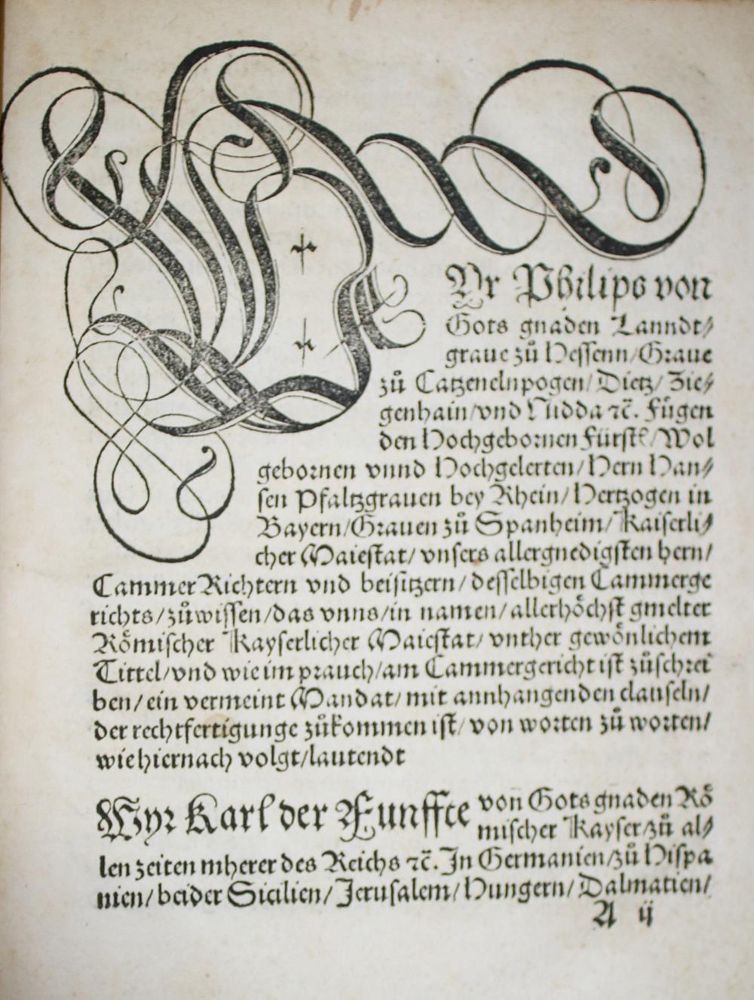 WYr Philips von
Gots gnaden Lanndt⸗
graue zů Hessenn/Graue
zů Catzenelnpogen/Dietz/Zie⸗
genhain/vnd Nidda ꝛc. Fůgen
den Hochgebornen Fürstẽ/Wol
gebornen vnnd Hochgelerten/Hern Han⸗
sen Pfaltzgrauen bey Rhein/Hertzogen in
Bayern/Grauen zů Spanheim/Kaiserli⸗
cher Maiestat/vnsers allergnedigsten hern/
Cammer Richtern vnd beisitzern/desselbigen Cammerge
richts/zůwissen/das vnns/in namen/allerhöchst gmelter
Römischer Kayserlicher Maiestat/vnther gewönlichem
Tittel/vnd wie im prauch/am Cammergericht ist zůschrei
ben/ein vermeint Mandat/mit annhangenden clauseln/
der rechtfertigunge zůkommen ist/von worten zů worten/
wie hiernach volgt/lautendt
Wyr Karl der Funffte von Gots gnaden Rö
mischer Kayser/zů al⸗
len zeiten mherer des Reichs ꝛc. In Germanien/zů Hispa
nien/beider Sicilien/Jerusalem/Hungern/Dalmatien/
A ij